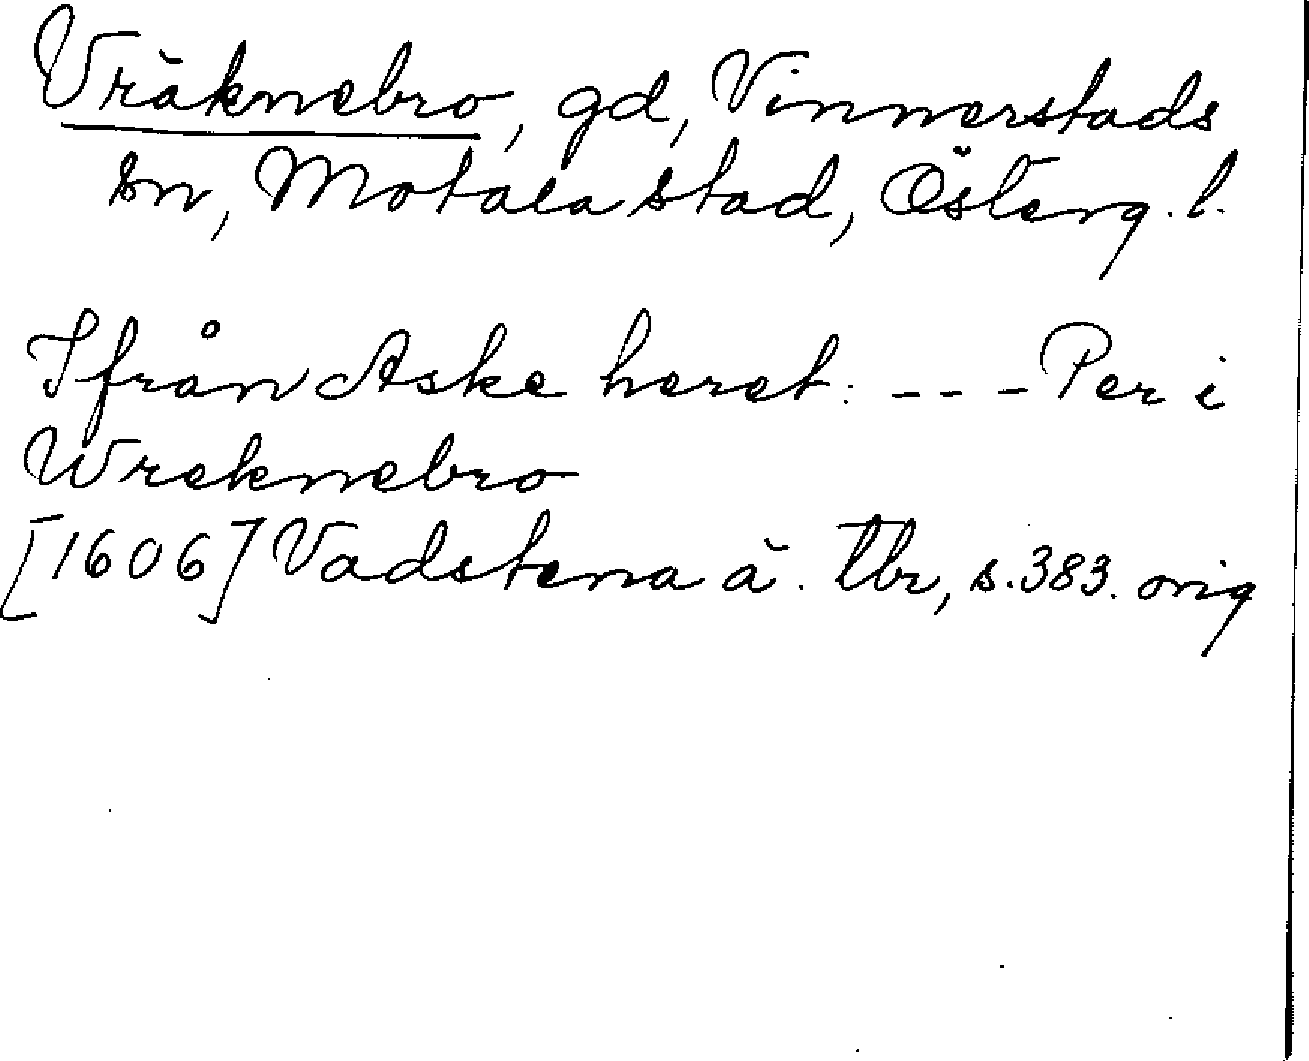 Vräknebro, gd, Vinnerstads
sn, Motala stad, Österg. l.
Ifrån Aske heret: --- Per i
Wreknebro
[1606] Vadstena ä. tbr, s. 383. orig